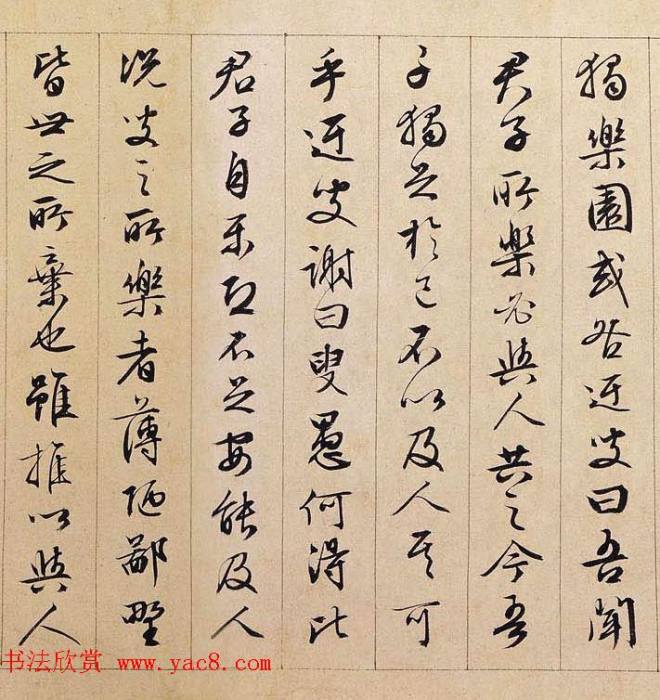 獨樂園或咎迂叟曰吾聞
君子所樂必與人共之今吾
子獨足於己不以及人其可
乎迂叟謝曰叟愚何得比
君子自樂恐不足安能及人
況叟之所樂者薄陋鄙野
皆世之所棄也雖推以與人
书法欣赏 www.yac8.com